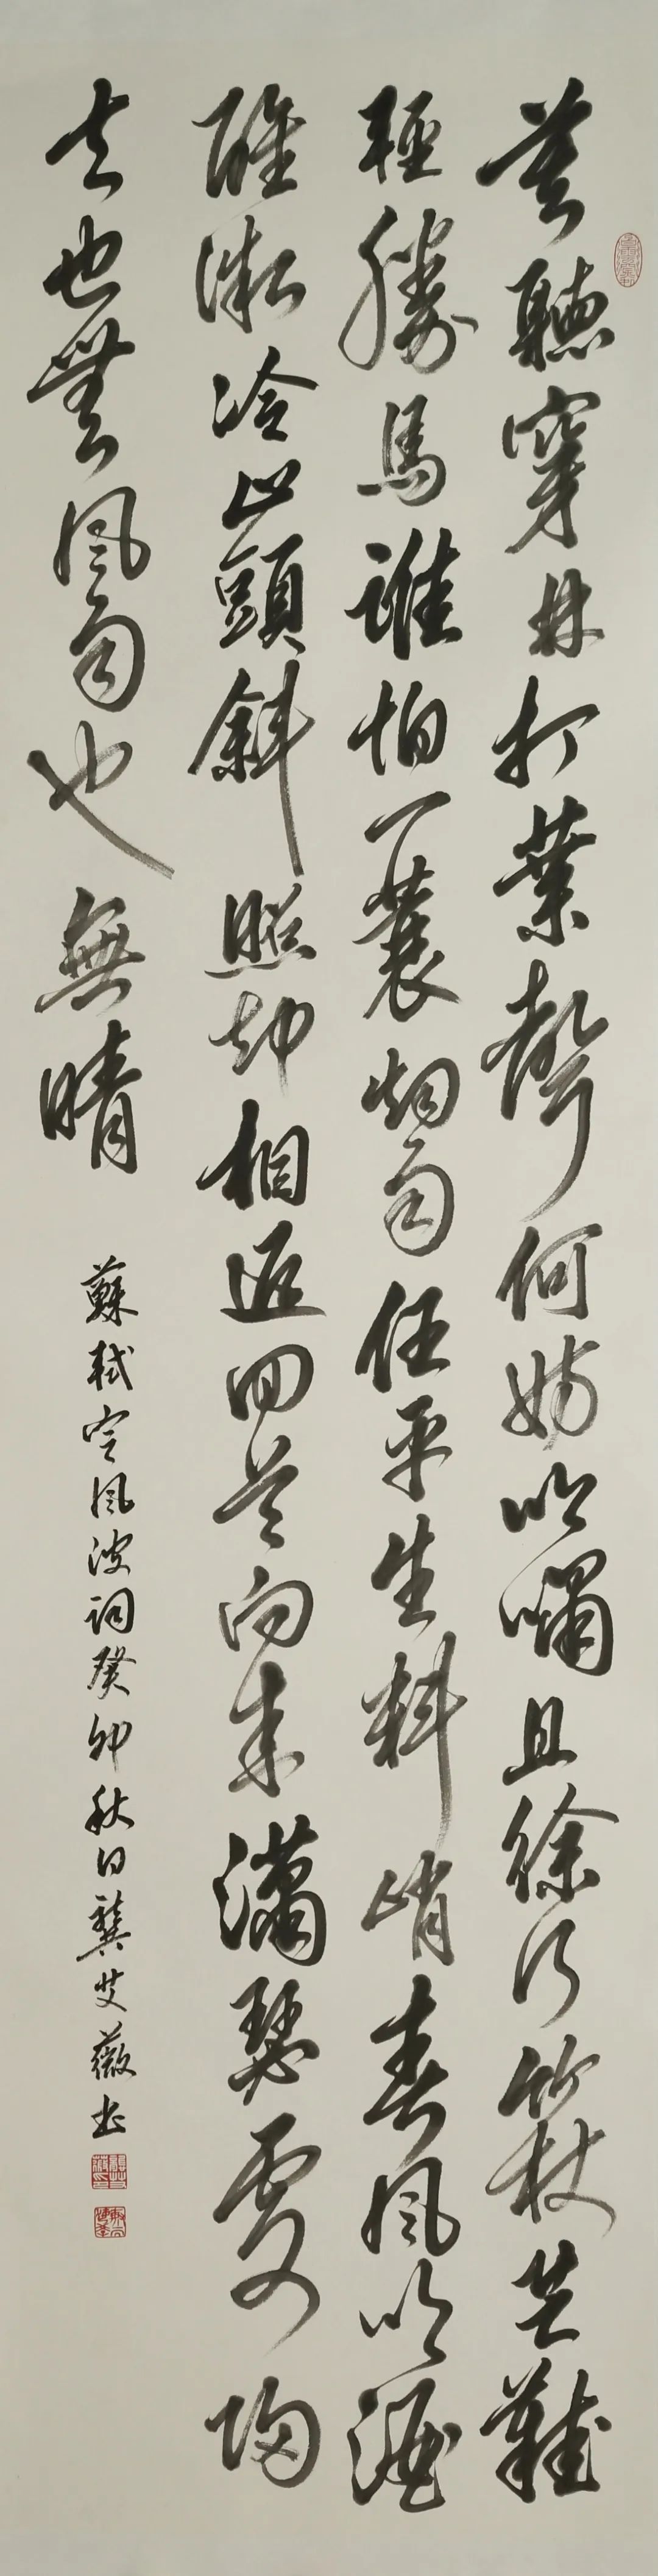 莫聽穿林打葉聲何妨吟嘯且徐行竹杖芒鞋
輕勝馬誰怕一蓑烟雨任平生料峭春風吹酒
醒微冷山頭斜照却相迎回首向來瀟瑟處歸
去也無風雨也無晴
蘇軾定風波詞癸卯秋日龔艾薇書